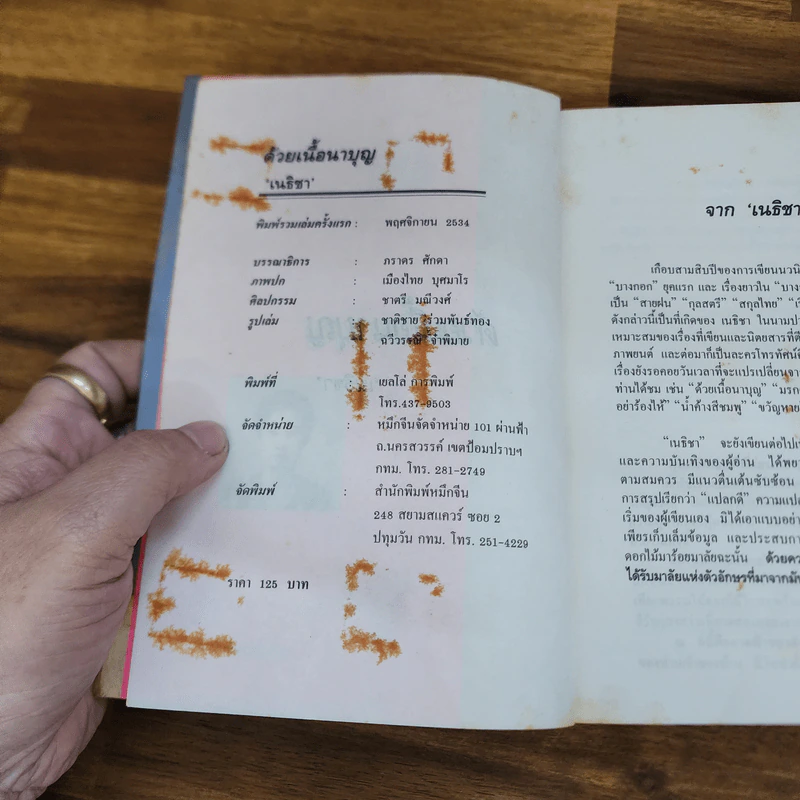 ด้วยเนื้อนาบุญ
'เนธิชา'
พิมพ์รวมเล่มครั้งแรก : พฤศจิกายน 2534
บรรณาธิการ : ภราดร ศักดา
ภาพปก : เมืองไทย บุศมาโร
ศิลปกรรม : ชาตรี มณีวงศ์
รูปเล่ม : ชาติชาย ร่วมพันธ์ทอง
ฉวีวรรณ จำพิมาย
พิมพ์ที่ : เยลโล่ การพิมพ์
โทร.437-9503
จัดจำหน่าย : หมึกจีนจัดจำหน่าย 101 ผ่านฟ้า
ถ.นครสวรรค์ เขตป้อมปราบฯ
กทม. โทร. 281-2749
จัดพิมพ์ : สำนักพิมพ์หมึกจีน
248 สยามสแควร์ ซอย 2
ปทุมวัน กทม. โทร. 251-4229
ราคา 125 บาท
จาก 'เนธิชา
เกือบสามสิบปีของการเขียนนวนิ
"บางกอก" ยุคแรก และ เรื่องยาวใน "บาง
เป็น "สายฝน" "กุลสตรี" "สกุลไทย"
ดังกล่าวนี้เป็นที่เกิดของ เนธิชา ในนามปา
เหมาะสมของเรื่องที่เขียนและนิตยสารที่ตี
ภาพยนต์ และต่อมาก็เป็นละครโทรทัศน์
เรื่องยังรอคอยวันเวลาที่จะแปรเปลี่ยนจาก
ท่านได้ชม เช่น "ด้วยเนื้อนาบุญ" "มรก
อย่าร้องไห้" "น้ำค้างสีชมพู" "ขวัญหาย
"เนธิชา" จะยังเขียนต่อไปเพ
และความบันเทิงของผู้อ่าน ได้พยา
ตามสมควร มีแนวตื่นเต้นซับซ้อน
การสรุปเรียกว่า "แปลกดี" ความแปล
เริ่มของผู้เขียนเอง มิได้เอาแบบอย่า
เพียรเก็บเล็มข้อมูล และประสบกา
ดอกไม้มาร้อยมาลัยฉะนั้น ด้วยคว
ได้รับมาลัยแห่งตัวอักษรที่มาจากมั